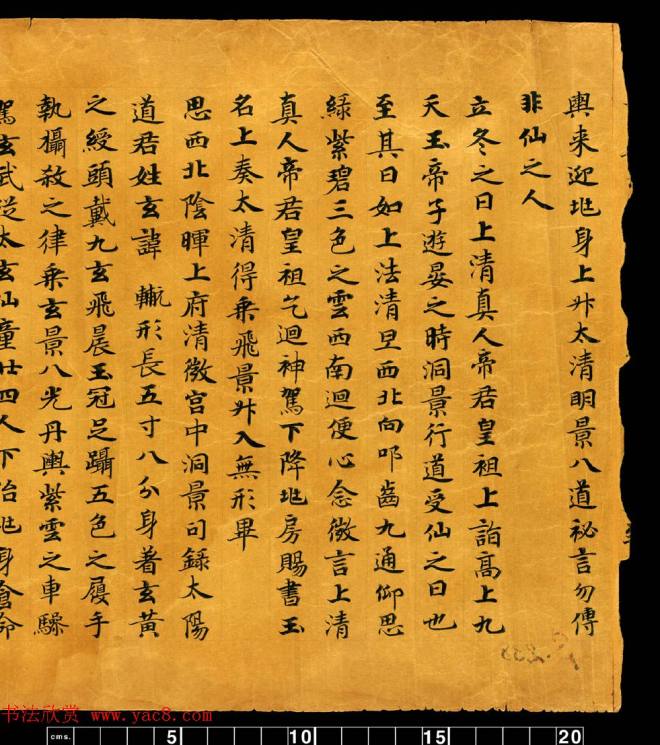 輿来迎𡉏身上升太清明景八道祕言勿傳
非仙之人
立冬之日上清真人帝君皇祖上詣髙上九
天玉帝子遊晏之時洞景行道受仙之日也
至其日如上法清旦西北向叩齒九通仰思
緑紫碧三色之雲西南迴便心念微言上清
真人帝君皇祖乞迴神駕下降𡉏房賜書玉
名上奏太清得乗飛景升入無形畢
思西北陰暉上府清微宫中洞景司録太陽
道君姓玄諱 形長五寸八分身著玄黃
之綬頭戴九玄飛晨玉冠足躡五色之履手
執攝殺之律乗玄景八光丹輿紫雲之車驂
駕玄武従太玄仙童廿四人下治𡉏身倉命
书法欣赏 www.yac8.com
cms. 5 10 15 20